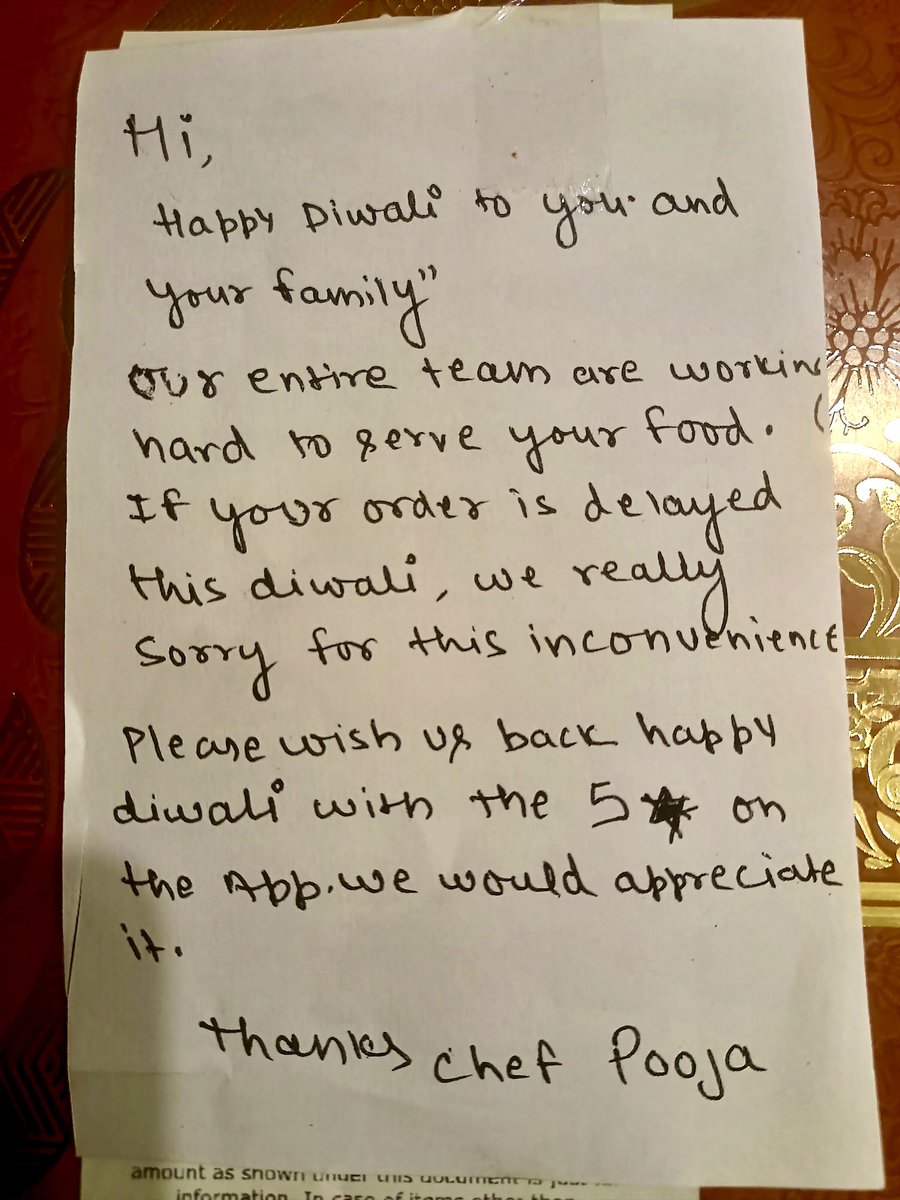 Hi,
Happy Diwali to you and
your family"
Our entire team are workin
hard to serve your food.
If your order is delayed
this diwali, we really
sorry for this inconvenience
Please wish us back happy
diwali with the 5★ on
the App. we would appreciate
it.
Thanks chef Pooja
amount as shown under this document is
information. In case of items other than